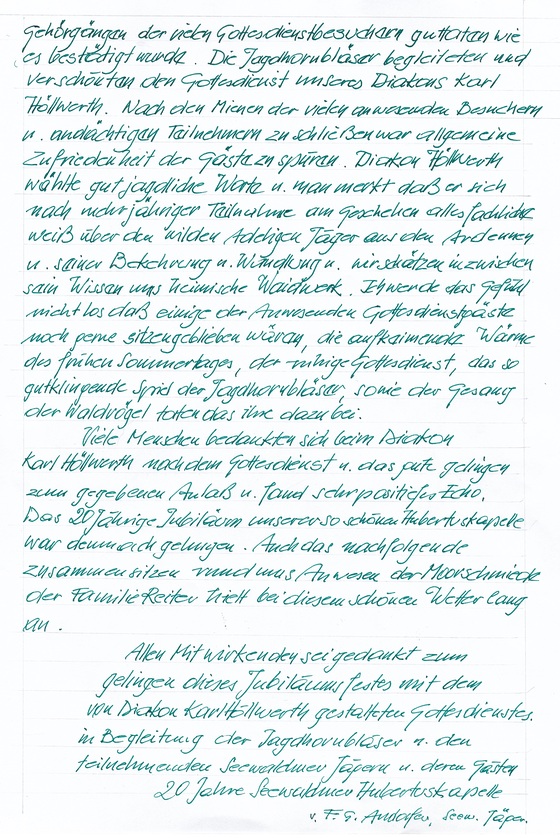 Gehörgängen der vielen Gottesdienstbesuchern guttaten wie
es bestätigt wurde. Die Jagdhornbläser begleiteten und
verschönten den Gottesdienst unseres Diakons Karl
Höllwerth. Nach den Mienen der vielen anwesenden Besuchern
u. andächtigen Teilnehmern zu schließen war allgemeine
Zufriedenheit der Gäste zu spüren. Diakon Höllwerth
wählte gut jagdliche Worte u. man merkt daß er sich
nach mehrjähriger Teilnahme am Geschehen alles fachliche
weiß über den wilden Adeligen Jäger aus den Ardennen
u. seiner Bekehrung u. Wandlung u. wir schätzen inzwischen
sein Wissen ums heimische Waidwerk. Ich werde das Gefühl
nicht los daß einige der Anwesenden Gottesdienstgäste
noch gerne sitzengeblieben wären, die aufkeimende Wärme
des frühen Sommertages, der ruhige Gottesdienst, das so
gutklingende Spiel der Jagdhornbläser, sowie der Gesang
der Waldvögel taten das ihre dazu bei.
Viele Menschen bedankten sich beim Diakon
Karl Höllwerth nach dem Gottesdienst u. das gute gelingen
zum gegebenen Anlaß u. fand sehr positives Echo.
Das 20 Jährige Jubiläum unserer so schönen Hubertuskapelle
war demnach gelungen. Auch das nachfolgende
zusammensitzen rund ums Anwesen der Moorschmiede
der Familie Reiter hielt bei diesem schönen Wetter lang
an.
Allen Mitwirkenden sei gedankt zum
gelingen dieses Jubiläumsfestes mit dem
von Diakon Karl Höllwerth gestalteten Gottesdienstes.
in Begleitung der Jagdhornbläser u. den
teilnehmenden Seewaldner Jägern u. deren Gästen
20 Jahre Seewaldner Hubertuskapelle
v. F. G. Seew. Jäger.